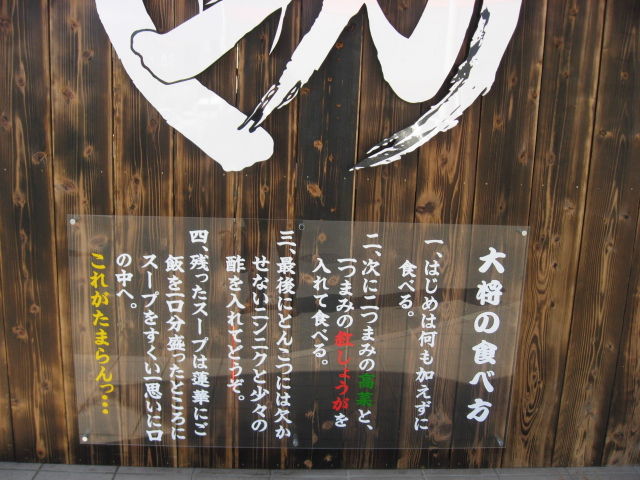 大将の食べ方
一、はじめは何も加えずに
食べる。
二、次に二つまみの高菜と、
一つまみの紅しょうがを
入れて食べる。
三、最後にとんこつには欠か
せないニンニクと少々の
酢を入れてどうぞ。
四、残ったスープは蓮華にご
飯を一口分盛ったところに
スープをすくい一思いに口
の中へ。
これがたまらんっ…